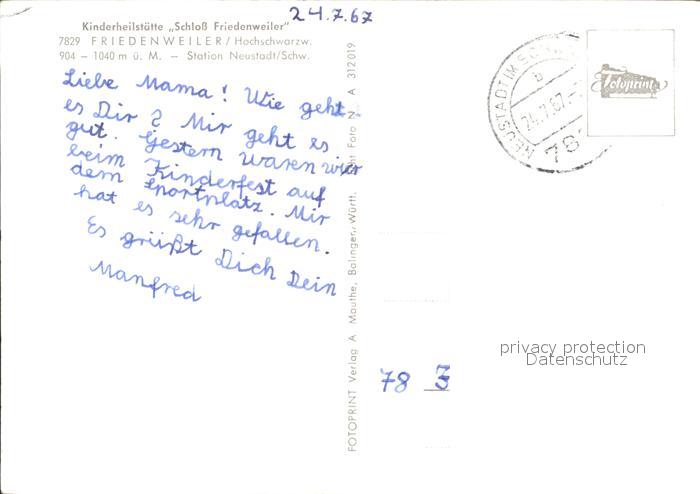 24.7.67
Kinderheilstätte „Schloß Friedenweiler"
7829 FRIEDENWEILER / Hochschwarzw.
904 – 1040 m ü. M. – Station Neustadt/Schw.
Liebe Mama! Wie geht
es Dir? Mir geht es
gut. Gestern waren wir
beim Kinderfest auf
dem Sportplatz. Mir
hat es sehr gefallen.
Es grüßt Dich Dein
Manfred
FOTOPRINT Verlag A Mauthe, Balingen/Württ. Foto A 312019
NEUSTADT IM SCHW
b
24.7.67.-
78
Fotoprint
78 3
privacy protection
Datenschutz